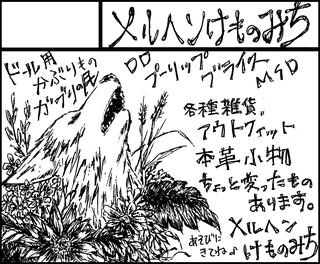 メルヘンけものみち
ドール用
かぶりもの
ガブリの民
DD
プーリップ
ブライス
MSD
各種雑貨
アウトフィット
本革小物
ちょっと変ったもの
あります。
メルヘン
けものみち
あそびに
きてね♪